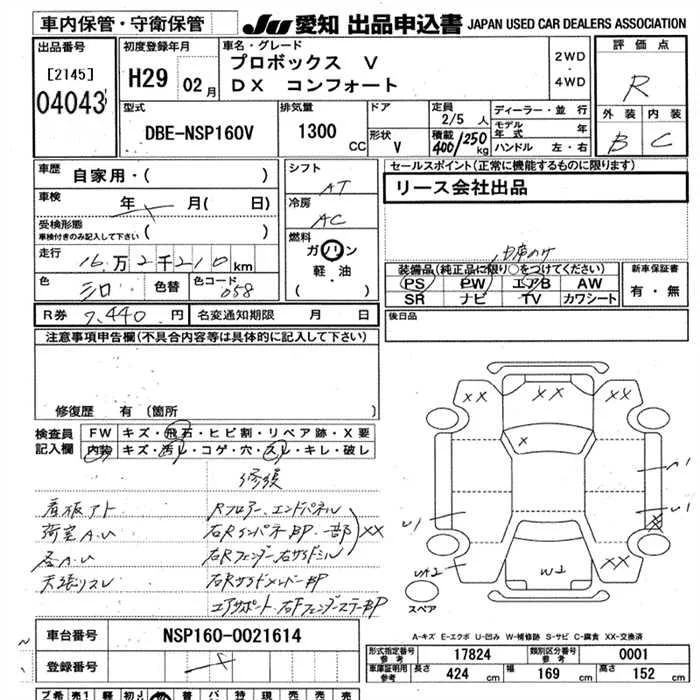 車内保管・守衛保管
JU 愛知 出品申込書 JAPAN USED CAR DEALERS ASSOCIATION
出品番号
[2145]
04043
初度登録年月
H29 02月
車名・グレード
プロボックス V
DX コンフォート
2WD
・
4WD
評価点
R
外装 内装
B C
型式
DBE-NSP160V
排気量
1300 CC
ドア
形状
V
定員
2/5 人
積載
400/250 kg
ディーラー・並行
モデル年式 年
ハンドル 左・右
車歴
自家用・( )
車検
年 月( 日)
受検形態
車検付きのみ記入して下さい ( )
走行
16万2千210km
色
シロ
色替
色コード
058
シフト
AT
冷房
AC
燃料
ガソリン
軽・油
( )
セールスポイント(正常に機能するものに限ります)
リース会社出品
装備品(純正品に限り○をつけてください)
PS PW エアB AW
SR ナビ TV カワシート
新車保証書
有・無
R券 7,440円
名変通知期限 月 日
後日品
注意事項申告欄(不具合内容等は具体的に記入して下さい)
修復歴 有(箇所
検査員記入欄
FW キズ・飛石・ヒビ割・リペア跡・X要
内装 キズ・汚レ・コゲ・穴・スレ・キレ・破レ
修復
看板アト
荷室A.U
各A.U
天張リスレ
Rフロアー、エンドパネル
右Rインパネ BP 一部
右Rフェンダー、右サイドシル
XX
エアサポート
XX
XX XX
X
XX
U1
U1
UA2
W2
スペア
A-キズ E-エクボ U-凹み W-補修跡 S-サビ C-腐食 XX-交換済
車台番号
NSP160-0021614
登録番号
形式指定番号
参考
17824
類別区分番号
参考
0001
車庫証明用
参考
長さ 424 cm
幅 169 cm
高さ 152 cm